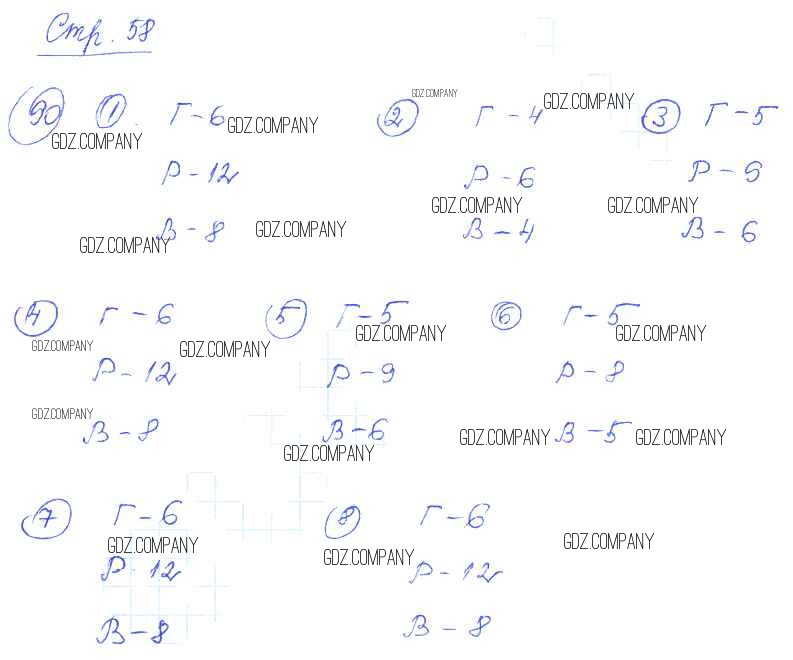 Стр. 58
90 1 Г-6 2 Г-4 3 Г-5
GDZ.COMPANY GDZ.COMPANY GDZ.COMPANY GDZ.COMPANY
Р-12 Р-6 Р-9
GDZ.COMPANY GDZ.COMPANY
В-8 В-4 В-6
GDZ.COMPANY GDZ.COMPANY
4 Г-6 5 Г-5 6 Г-5
GDZ.COMPANY GDZ.COMPANY GDZ.COMPANY GDZ.COMPANY
Р-12 Р-9 Р-8
GDZ.COMPANY
В-8 В-6 В-5
GDZ.COMPANY GDZ.COMPANY GDZ.COMPANY
7 Г-6 8 Г-6
GDZ.COMPANY GDZ.COMPANY GDZ.COMPANY
Р-12 Р-12
В-8 В-8